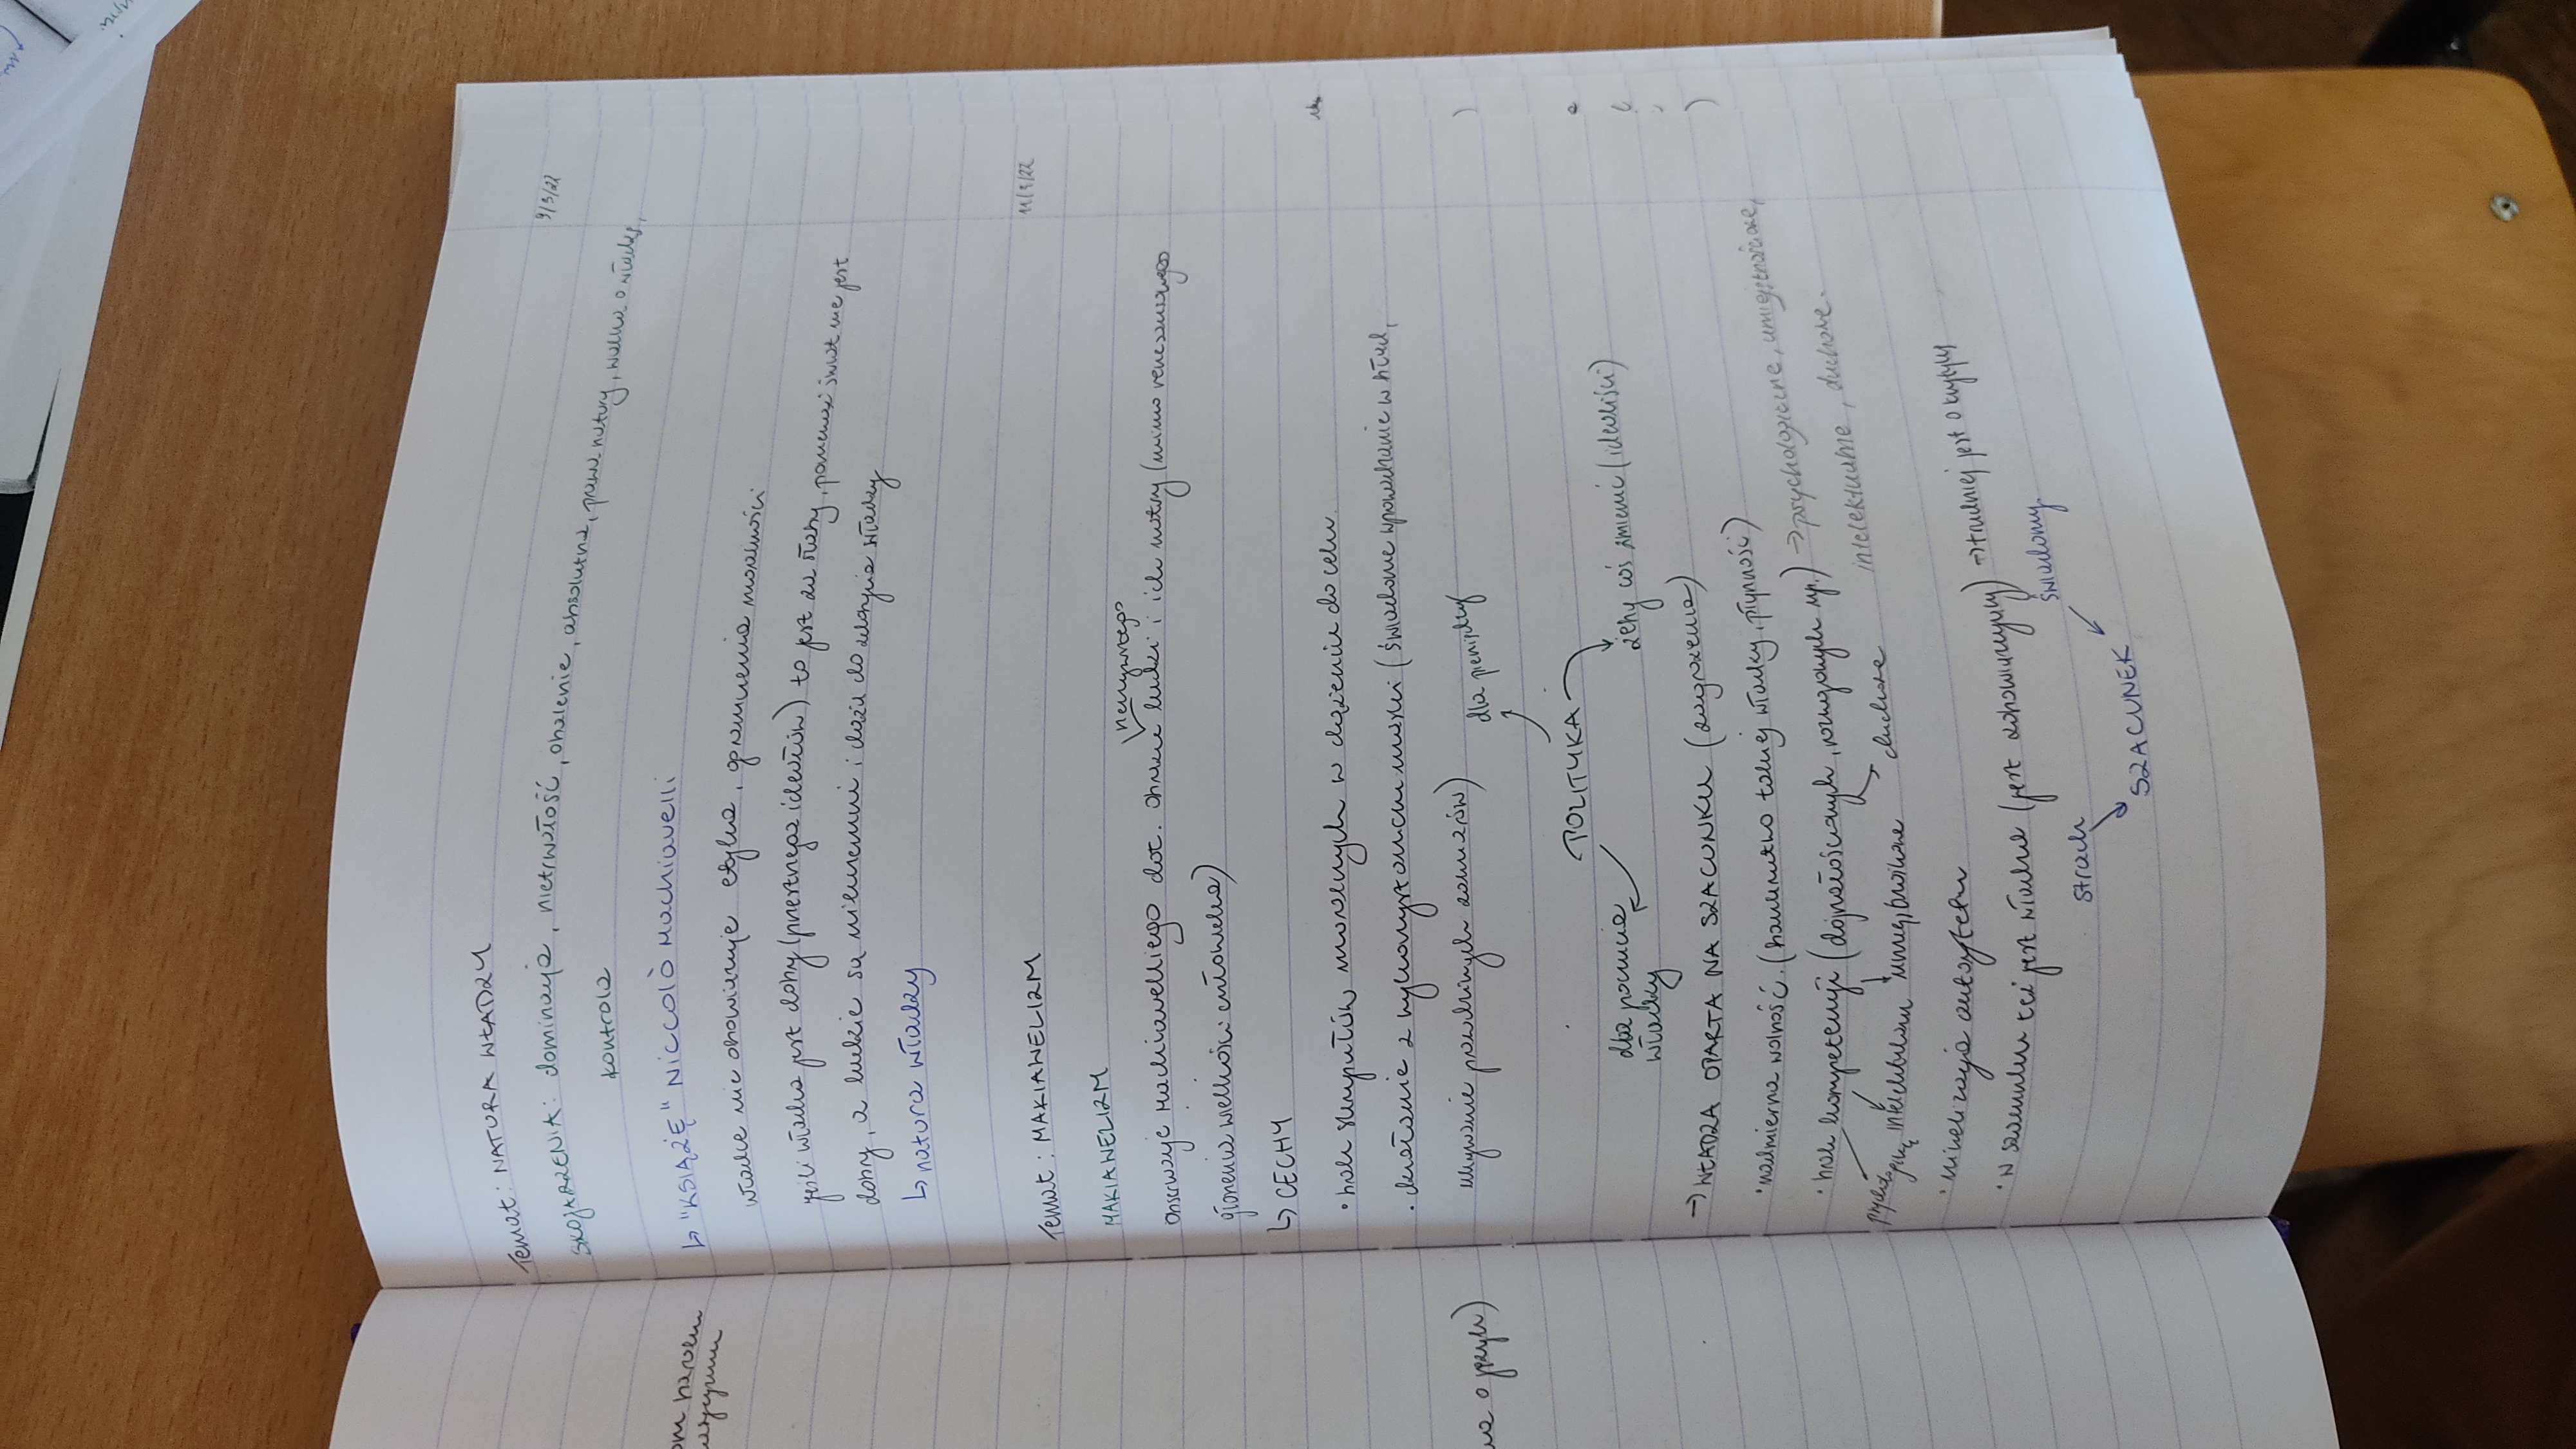 Temat: NATURA WŁADZY
9/5/22
SKOJARZENIA: dominacja, nietrwałość, obalenie, absolutna, prawa natury, walka o władzę,
kontrola
↳ "KSIĄŻĘ" NICCOLÒ Machiavelli
władce nie obowiązuje etyka, ograniczenia moralności
jeśli władca jest dobry (przestrzega ideałów) to jest za słaby, ponieważ świat nie jest
dobry, a ludzie są nikczemni i dążą do zdobycia władzy
↳ natura władzy
Temat: MAKIAWELIZM
11/5/22
MAKIAWELIZM
negatywnego
obserwacje Machiavelliego dot. obrazu ludzi i ich natury (mimo renesansowego
głoszenia wielkości człowieka)
↳ CECHY
• brak skrupułów moralnych w dążeniu do celu.
• działanie z wykorzystaniem maski (świadome wprowadzanie w błąd,
ukrywanie prawdziwych zamiarów)
dla pieniędzy
POLITYKA
dla poczucia
władzy
żeby coś zmienić (idealiści)
→ WŁADZA OPARTA NA SZACUNKU (zagrożenia)
• nadmierna wolność. (tak​iej władzy, płynność)
• brak kompetencji (dojrzałościowych, np.) → psychologiczne, umiejętnościowe,
intelektualne, duchowe.
intelektualne umiejętnościowe duchowe
• niwelizacja autorytetu
• w szacunku też jest władza (jest zobowiązujący) → trudniej jest o krytykę
strach
świadomy
SZACUNEK
om
wa o język)